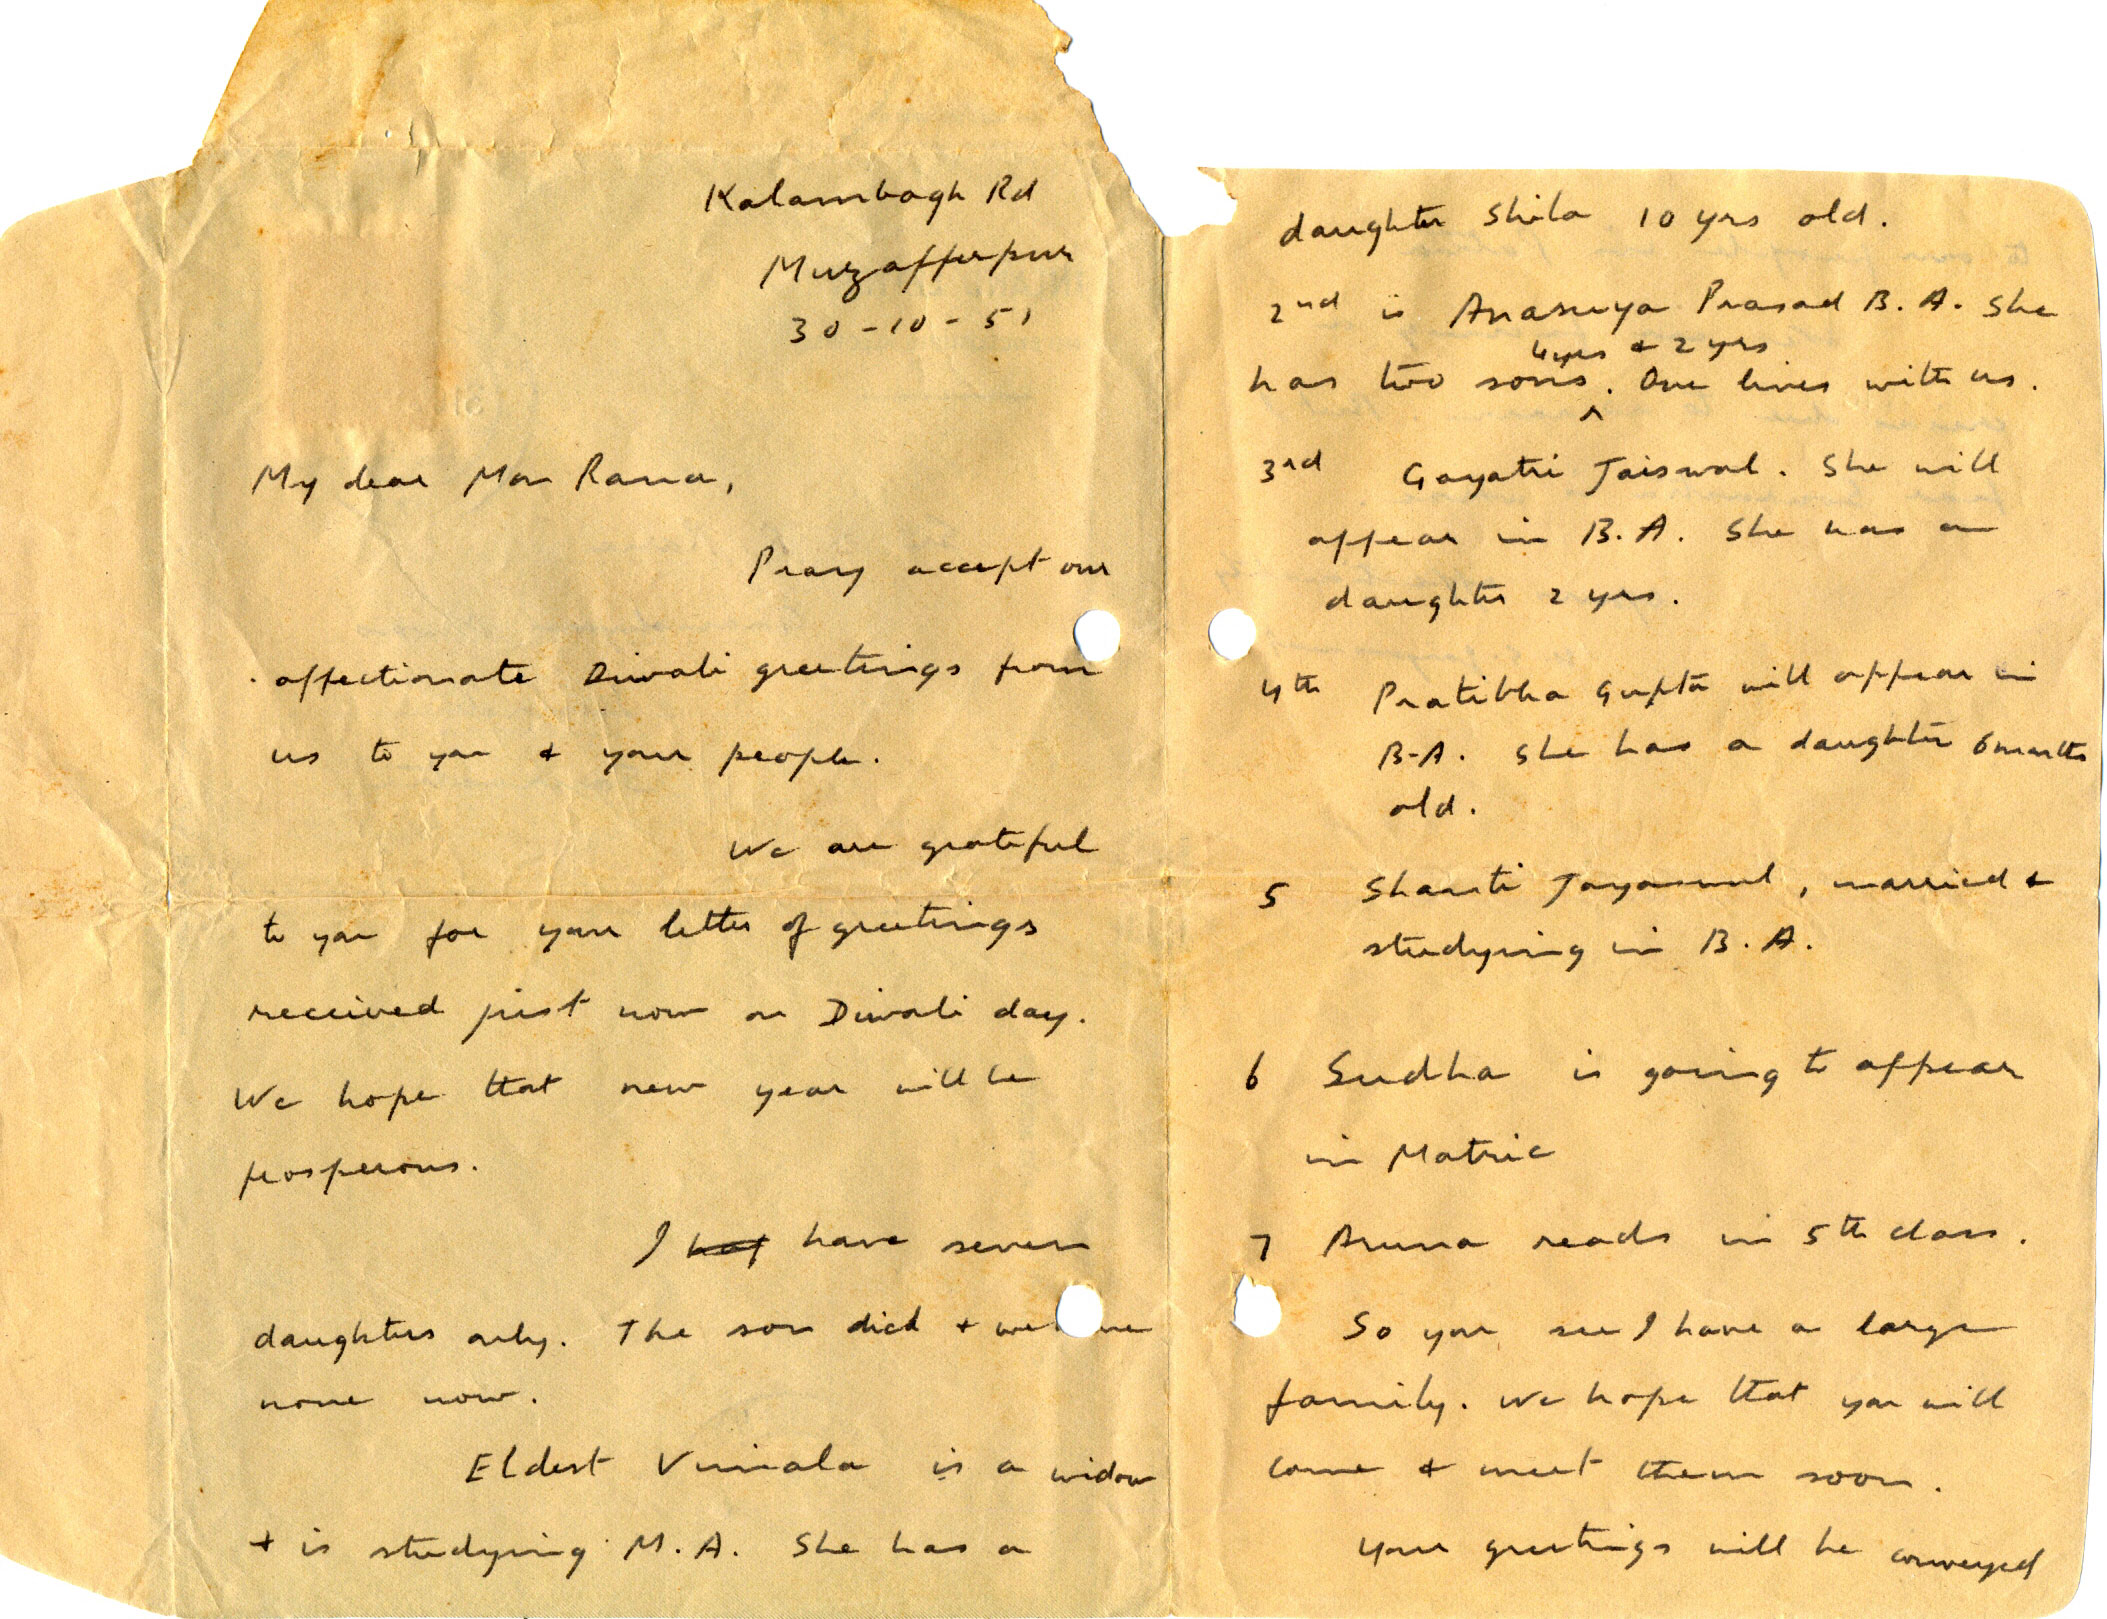 Kalambagh Rd
Muzafferpur
30-10-51
My dear Man Rana,
Pray accept our
affectionate Diwali greetings from
us to you & your people.
We are grateful
to you for your letter of greetings
received just now on Diwali day.
We hope that new year will be
prosperous.
I have seven
daughters only. The son died & we have
none now.
Eldest Vimala is a widow
& is studying M.A. She has a
daughter Shila 10 yrs old.
2nd is Anasuya Prasad B.A. She
4 yrs & 2 yrs
has two sons. One lives with us.
3rd Gayatri Jaiswal. She will
appear in B.A. She has a
daughter 2 yrs.
4th Pratibha Gupta will appear in
B-A. She has a daughter 6 months
old.
5 Shanti Jayaswal, married &
studying in B.A.
6 Sudha is going to appear
in Matric
7 Aruna reads in 5th class.
So you see I have a large
family. We hope that you will
come & meet them soon.
Your greetings will be conveyed